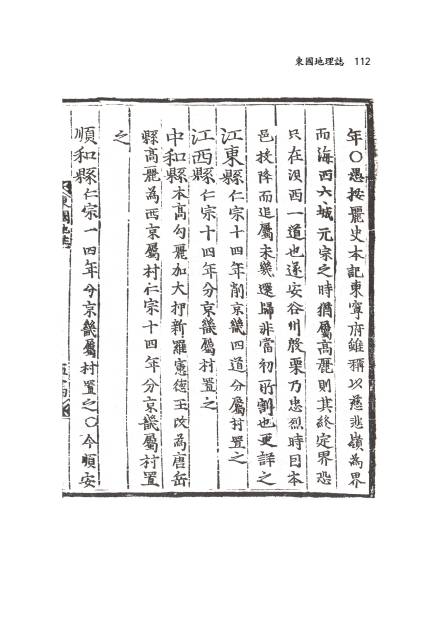 東國地理誌 112
年○愚按麗史本記東寧府雖稱以慈悲嶺爲界
而海西六城元宗之時猶屬高麗則其終定界恐
只在浿西一道也遂安谷州殷栗乃忠烈時因本
邑投降而追屬未幾還歸非當初所割也更詳之
江東縣仁宗十四年削京畿四道分屬村置之
江西縣仁宗十四年分京畿屬村置之
中和縣本高勾麗加大押新羅憲德王改為唐岳
縣高麗為西京屬村仁宗十四年分京畿屬村置
之
順和縣仁宗一四年分京畿屬村置之○今順安
東國地理誌